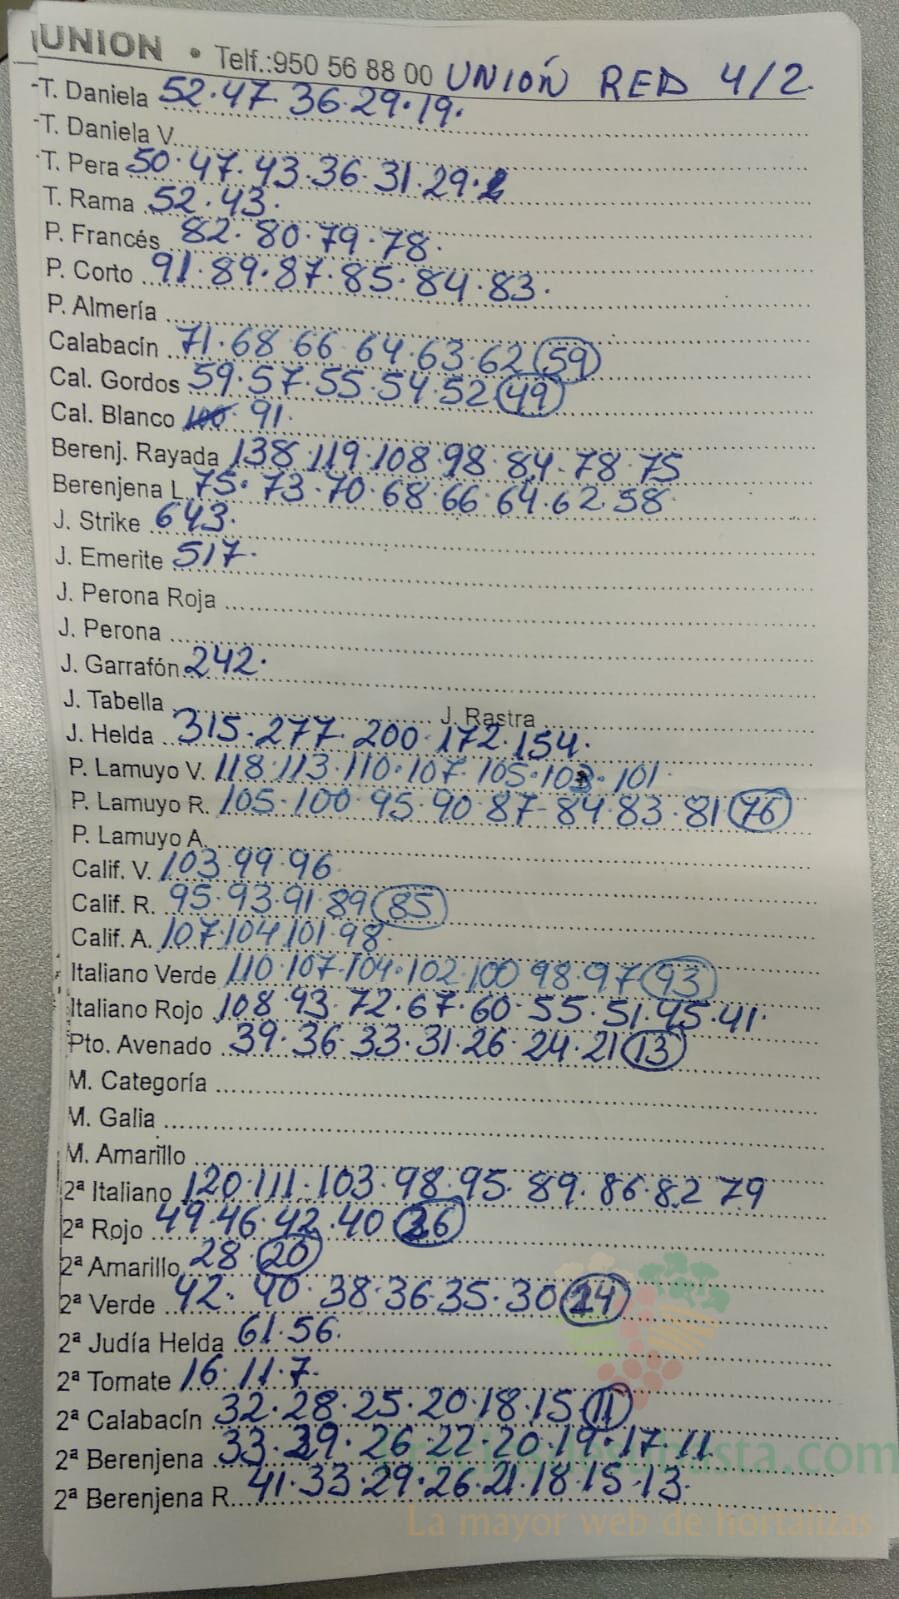 UNION • Telf.:950 56 88 00 UNIÓN RED 4/2.
T. Daniela 52·47·36·29·19·
T. Daniela V.
T. Pera 50·47·43·36·31·29·
T. Rama 52·43·
P. Francés 82·80·79·78·
P. Corto 91·89·87·85·84·83·
P. Almería
Calabacín 71·68 66 64·63·62 59
Cal. Gordos 59·57·55·54·52 49
Cal. Blanco 100 91
Berenj. Rayada 138 119·108·98·84·78·75
Berenjena L. 75·73·70·68·66·64·62·58
J. Strike 643·
J. Emerite 517·
J. Perona Roja
J. Perona
J. Garrafón 242·
J. Tabella J. Rastra
J. Helda 315·277·200·172·154·
P. Lamuyo V. 118·113·110·107·105·103·101
P. Lamuyo R. 105·100·95·90·87·84·83·81 76
P. Lamuyo A.
Calif. V. 103·99·96
Calif. R. 95·93·91·89 85
Calif. A. 107·104·101·98
Italiano Verde 110·107·104·102·100 98·97 93
Italiano Rojo 108·93·72·67·60·55·51·45·41·
Pto. Avenado 39·36·33·31·26·24·21 13
M. Categoría
M. Galia
M. Amarillo
2ª Italiano 120·111·103·98·95·89·86·82 79
2ª Rojo 49·46·42·40 26
2ª Amarillo 28·20
2ª Verde 42·40·38·36·35·30 24
2ª Judía Helda 61·56·
2ª Tomate 16·11·7·
2ª Calabacín 32·28·25·20·18·15 11
2ª Berenjena 33·29·26·22·20·19·17·11
2ª Berenjena R. 41·33·29·26·21·18·15·13·
La mayor web de hortalizas